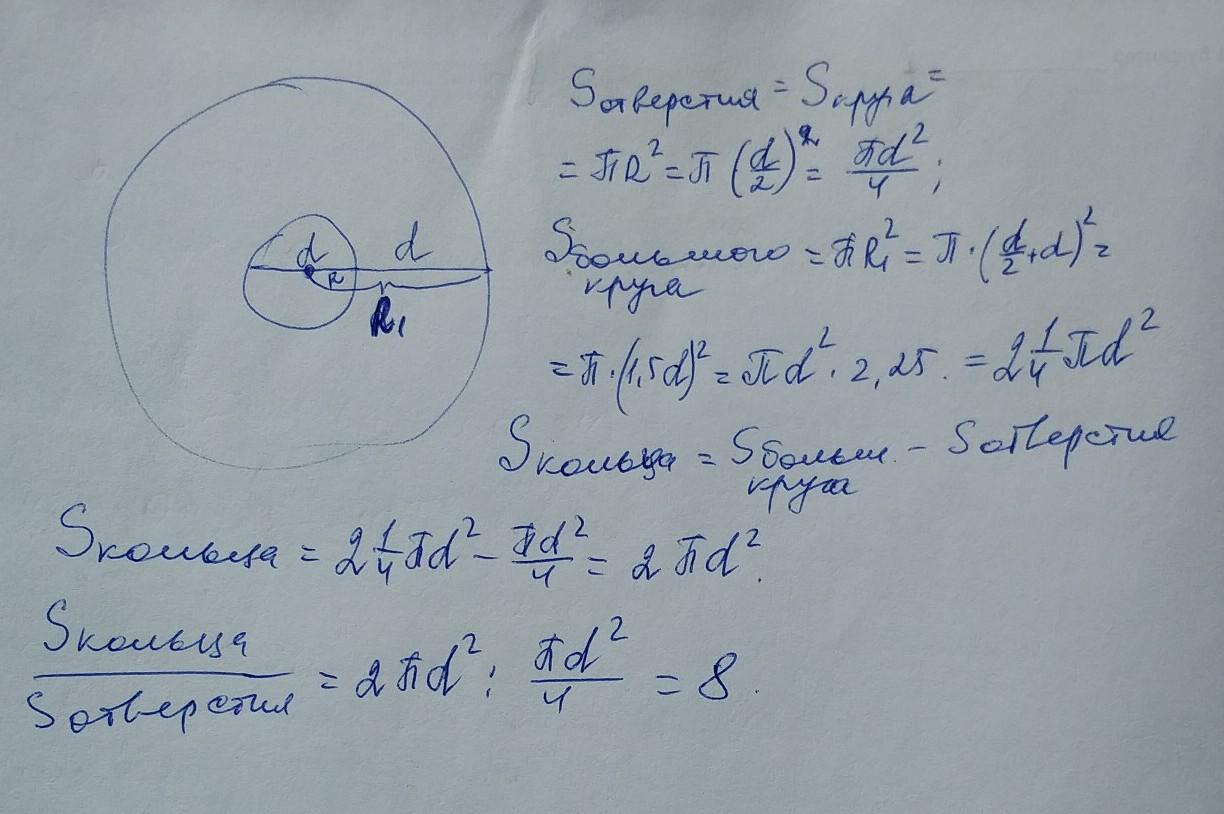 d d
R
R₁
Sотверстия = Sкруга =
= πR² = π (d/2)² = πd²/4 ;
Sбольшого круга = πR₁² = π·(d/2+d)² =
= π·(1,5d)² = πd² · 2,25. = 2 1/4 πd²
Sкольца = Sбольш. круга - Sотверстия
Sкольца = 2 1/4 πd² - πd²/4 = 2πd².
Sкольца/Sотверстия = 2πd² : πd²/4 = 8.